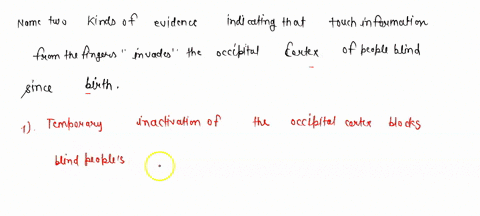 Name two kinds of evidence indicating that touch information
from the fingers "invades" the occipital cortex of people blind
since birth.
1). Temporary inactivation of the occipital cortex blocks
blind people's